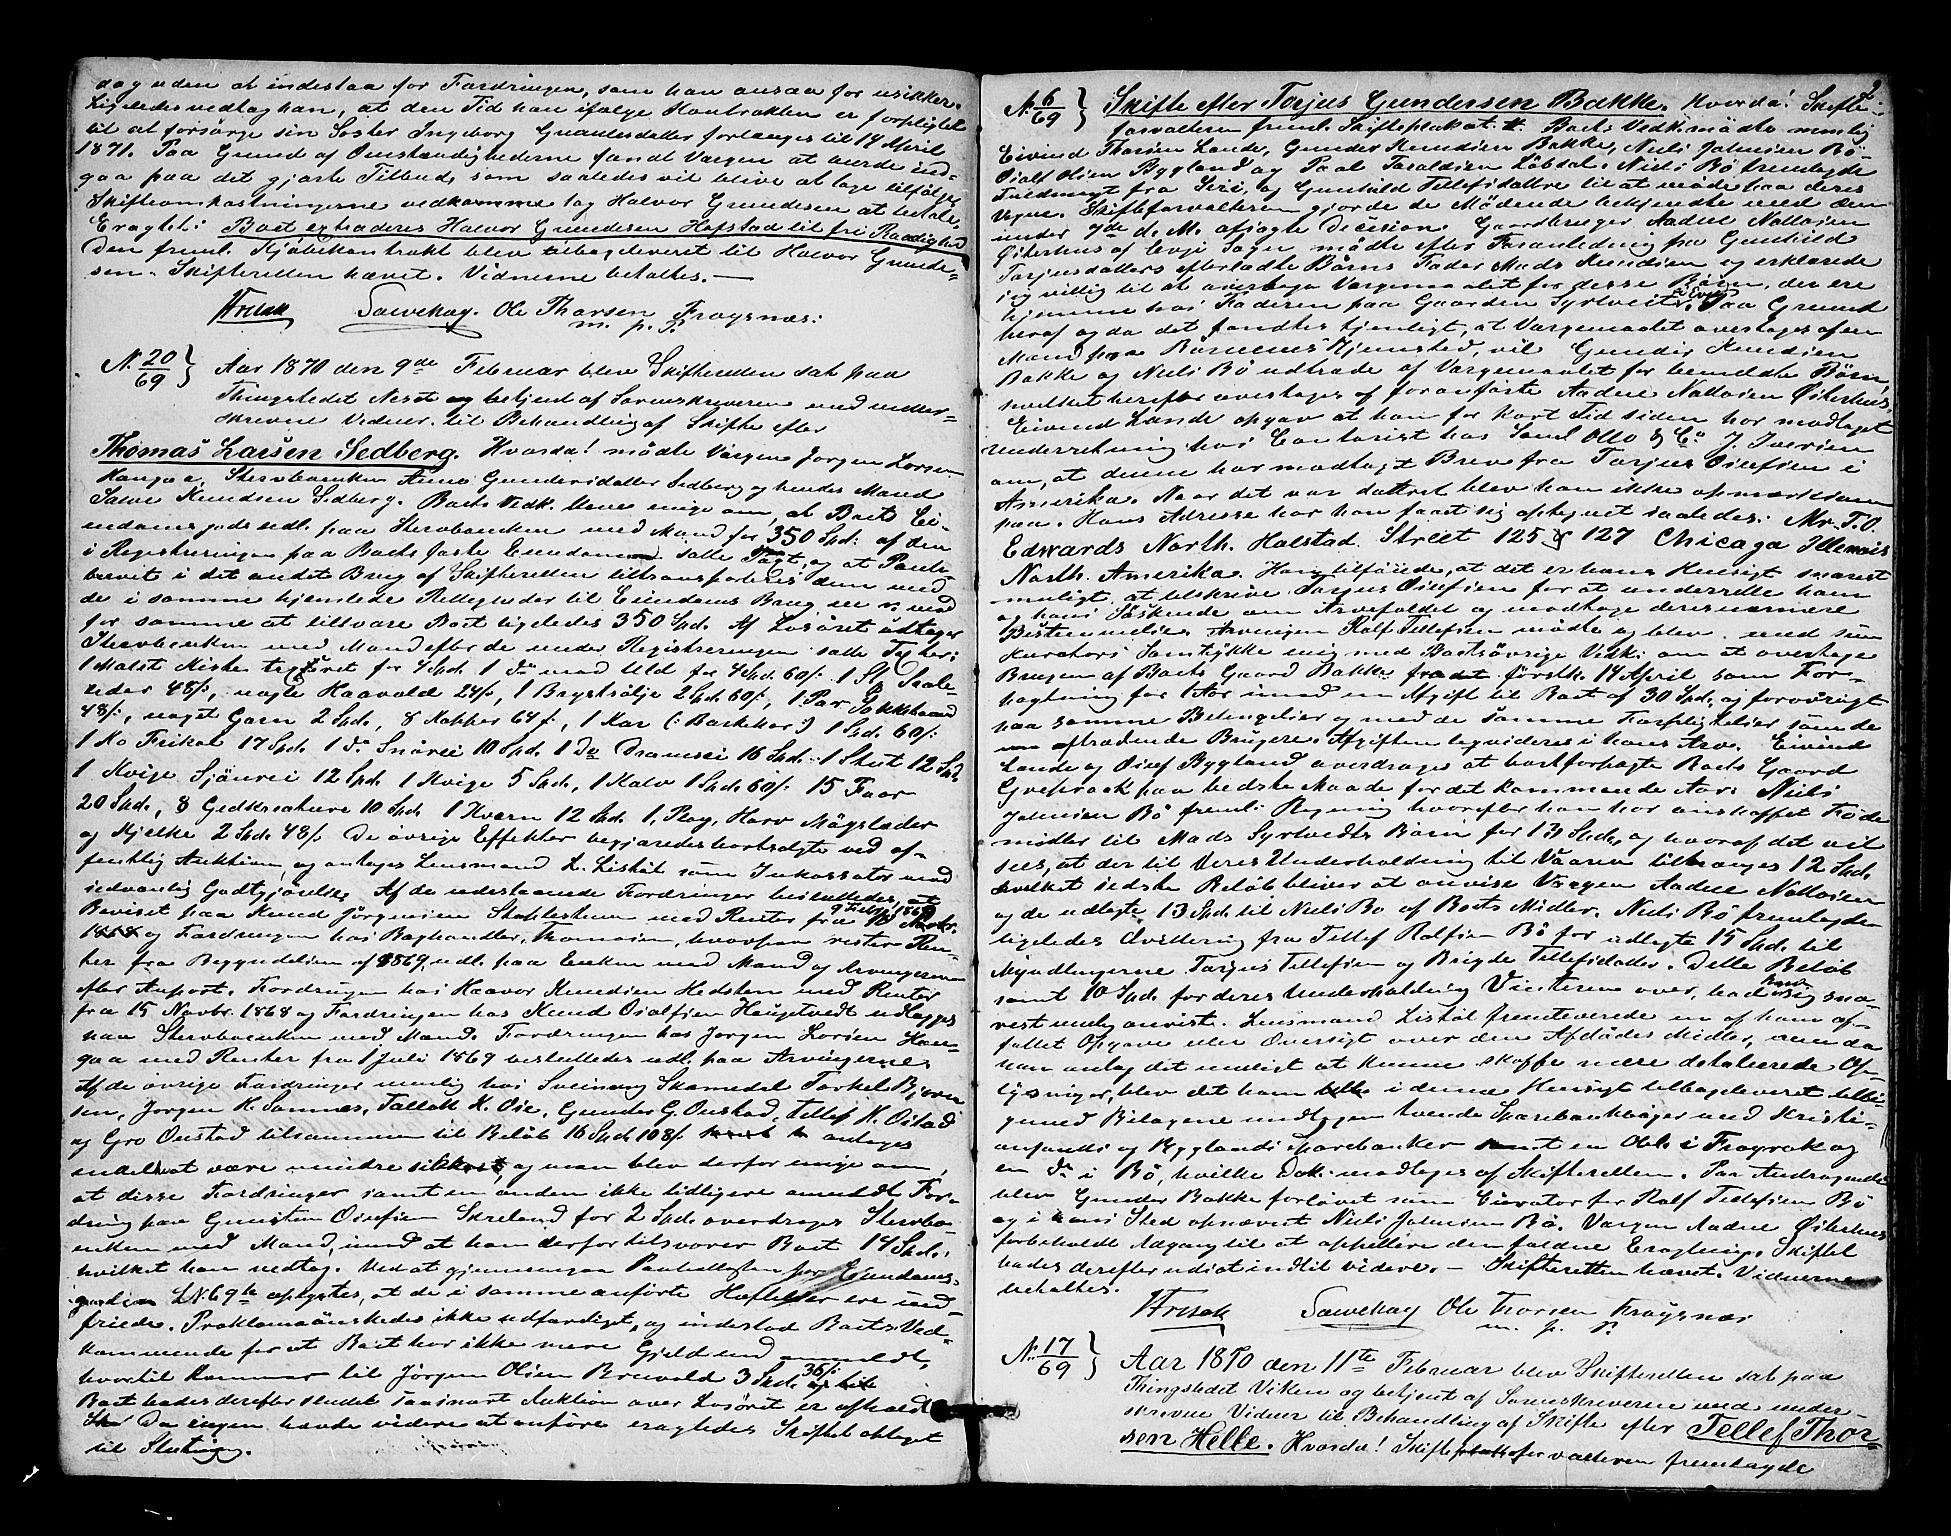 dag uden at indestaa for Fordringen, som han ansaa for usikker.
Ligeledes vedtog han, at den Tid han ifølge Kontrakten er forpligtet
til at forsørge sin Søster Ingeborg Gundersdatter forlænges til 14 April
1871. Paa Grund af Omstændighederne fandt Værgen at burde ind-
gaa paa det gjorte Tilbud, som saaledes vil blive at tage tilfølge.
Skifteomkostningerne vedkommende tog Halvor Gundersen at betale.
Eragtet: Boet extraderes Halvor Gundersen Hofstad til fri Raadighed
Den freml. Kjøbekontrakt blev tilbageleveret til Halvor Gunder-
sen. Skifteretten hævet. Vidnerne betaltes.
Ole Thorsen Frøysnæs.
m. p. P.
N. 20/69 } Aar 1870 den 9de Februar blev Skifteretten sat paa
Thingstedet Neset og betjent af Sorenskriveren med under-
skrevne Vidner til Behandling af Skifte efter
Thomas Larsen Sedberg. Hvorda! mødte Værgen Jørgen Larsen
Haugaa, Stervboenken Anne Gundersdatter Sedberg og hendes Mand
Salve Knudsen Sedberg. Boets Vedk. bleve enige om, at Boets Ei-
endomsgods udl. paa Stervboenken med Mand for 350 Spd. af den
i Registreringen paa Boets faste Eiendomme satte Taxt, og at Pante-
brevet i det andet Brug af Skifteretten transporteres dem med
de i samme hjemlede Rettigheder til Eiendoms Brug mod
for samme at tilsvare Boet ligeledes 350 Spd. Af Løsøret udtager
Stervboenken med Mand efter de under Registreringen satte Taxter:
1 Malet Kiste for 4 Spd. 1 do med Uld for 4 Spd. 60 ß. 1 St. Saale-
læder 48 ß, nogle Haavold 24 ß, 1 Brystsølje 2 Spd. 60 ß, 1 Par Sokkebaand
48 ß, noget Garn 2 Spd., 8 Kopper 64 ß, 1 Kar (: Barkekar :) 1 Spd. 60 ß.
1 Ko Frikol 17 Spd. 1 do Snørei 10 Spd. 1 Do Dramsei 16 Spd. 1 Stut 12 Spd.
1 Kvige Sjønrei 12 Spd. 1 Kvige 5 Spd., 1 Kalv 1 Spd. 60 ß. 15 Faar
20 Spd., 8 Gedkreature 10 Spd. 1 Kvern 12 Spd. 1 Plog, Harv Møgslæder
og Kjelke 2 Spd. 48 ß. De øvrige Effekter begjæredes bortsolgte ved of-
fentlig Auktion, og antages Lensmand L. Listøl som Inkassator mod
sædvanlig Godtgjørelse. Af de udestaaende Fordringer besluttedes, at
Beviset paa Knud Jørgensen med Renter fra 9 Febr. 1869
og Fordringen hos Boghandler Thomsen, hvorpaa restere Ren-
ter fra Begyndelsen af 1869, udl. paa Enken med Mand og Arvingerne
efter Anpart. Fordringen hos Haavor Knudsen Hedsten med Renter
fra 15 Novbr. 1868 og Fordringen hos Knud Osalfsen Haugtvedt udlægges
paa Stervboenken med Mand. Fordringen hos Jørgen Larsen Hau-
gaa med Renter fra 1 Juli 1869 besluttedes udl. paa Arvingerne.
Af de øvrige Fordringer nemlig hos Sveinung Skomedal Torkel Bjorn-
sen, Jørgen K. Somnes, Tallak K. Ose, Gunder G. Oustad, Tellef K. Oistad
og Gro Oustad tilsammen til Beløb 16 Spd. 108 ß. antoges
endel at være mindre sikkert, og man blev derfor enige om,
at disse Fordringer samt en anden ikke tidligere anmeldt For-
dring paa Gunsten Oiufsen Streland for 2 Spd. overdrages Stervbo-
enken med Mand, imod at han derfor tilsvarer Boet 14 Spd.,
hvilket han vedtog. Ved at gjennemgaa Panteattesten for Eiendoms-
L. N. 69 oplystes, at de i samme anførte Heftelser ere ind-
friede. Proklama ønskedes ikke udfærdiget, og indestod Boets Ved-
kommende for at Boet har ikke mere Gjeld end anmeldt,
hvortil kommer til Jørgen Olsen Breivold 3 Spd. 36 ß.
Boet hades derefter sluttet saasnart Auktion over Løsøret er afholdt
Da ingen havde videre at anføre eragtedes Skiftet optaget
til Slutning.
N. 6/69 } Skifte efter Torjus Gundersen Bakke. Hvorda! Skifte-
forvalteren freml. Skifteplakat. Boets Vedk. mødte nemlig
Eivind Thorsen Lande, Gunder Knudsen Bakke, Niels Johnsen Bø
Osalf Olsen Bygland og Paal Taraldsen Løbdal. Niels Bø fremlagde
Fuldmagt fra Siri, og Gunhild Tellefsdattre til at møde paa deres
Vegne. Skifteforvalteren gjorde de Mødende bekjendte med den
under 7de d. M. afsagte Decision. Gaardbruger Aadne Nottolsen
Øiterhus af Evje Sogn mødte efter Foranledning fra Gunhild
Torjusdatters efterladte Børns Fader Mads Knudsen og erklærede
sig villig til at overtage Værgemaalet for disse Børn, der ere
hjemme hos Faderen paa Gaarden Syrtveit i Evje. Paa Grund
heraf og da det fandtes tjenligt, at Værgemaalet overtages af en
Mand fra Børnenes Hjemsted, vil Gunder Knudsen
Bakke og Niels Bø udtræde af Værgemaalet for bemeldte Børn,
hvilket herefter overtages af foranførte Aadne Nottolsen Øiterhus.
Eivind Lande opgav at han for kort Tid siden har modtaget
Underretning hos Contorist hos Sand Otto & Co J. Iversen
om, at denne har modtaget Brev fra Torjus Oiufsen i
Amerika. Naar det var dateret blev han ikke opmærksom
paa. Hans Adresse har han faaet sig opskrevet saaledes: Mr. T. O.
Edwards North. Halstad Street 125 & 127 Chicago Illenois
North. Amerika. Han tilføiede, at det er hans Hensigt snarest
muligt at tilskrive Torjus Oiufsen for at underrette ham
og hans Søskende om Arvefaldet og modtage deres nærmere
Bestemmelse. Arvingen Rolf Tellefsen mødte og blev med sin
Kurators Samtykke enig med Boets øvrige Vedk. om at overtage
Brugen af Boets Gaard Bakke førstk. 14 April som For-
pagtning for 1 Aar imod en Afgift til Boet af 30 Spd. og forøvrigt
paa samme Betingelser og med de samme Forpligtelser som de
aftrædende Brugere. Afgiften liqvideres i hans Arv. Eivind
Lande og Oiuf Bygland overdroges at bortforpagte Boets Gaard
paa bedste Maade for det kommende Aar. Niels
Johnsen Bø freml. Regning hvorefter han har anskaffet Føde-
midler til Mads Syrtvedts Børn for 13 Spd., og hvoraf det vil
sees, at der til deres Underholdning til Vaaren tiltrænges 12 Spd.
hvilket sidste Beløb bliver at anvise Værgen Aadne Nottolsen
og de udlagte 13 Spd. til Niels Bø af Boets Midler. Niels Bø fremlagde
ligeledes Qvittering fra Tellef Rolfsen Bø for udlagte 15 Spd. til
Myndlingerne Torjus Tellefsen og Brigde Tellefsdatter. Dette Beløb
samt 10 Spd. for deres Underholdning Vinteren over, bad han sig sna-
rest mulig anvist. Lensmand Listøl fremleverede en af ham af-
fattet Opgave eller Oversigt over den Afdødes Midler, men da
man antog det muligt at kunne skaffe mere detaillerede Op-
lysninger, blev det ham i denne Hensigt tilbageleveret tilli-
gemed Bilagene undtagen tvende Sparebankbøger med Kristi-
ansands og Byglands Sparebanker samt en Obl. i Frøyrak og
en do i Bø, hvilke Dok. modtoges af Skifteretten. Paa Andragende
blev Gunder Bakke forløvet som Curator for Rolf Tellefsen Bø
og i hans Sted opnævnt Niels Johnsen Bø. Værgen Aadne Øiterhus
forbeholdt Adgang til at appellere den faldne Eragtning. Skiftet
hades derefter udsat indtil videre. — Skifteretten hævet. Vidnerne
betaltes.
Ole Thorsen Frøysnæs
m. p. P.
N. 17/69 } Aar 1870 den 11te Februar blev Skifteretten sat paa
Thingstedet Viken og betjent af Sorenskriveren med under-
skrevne Vidner til Behandling af Skifte efter Tellef Thor-
sen Helle. Hvorda! Skifteforvalteren fremlagde